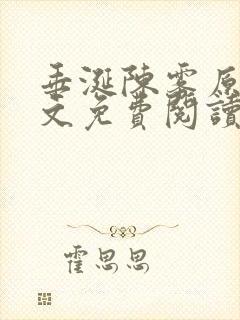 垂涎陳霧原
文免費閱讀
霍思思